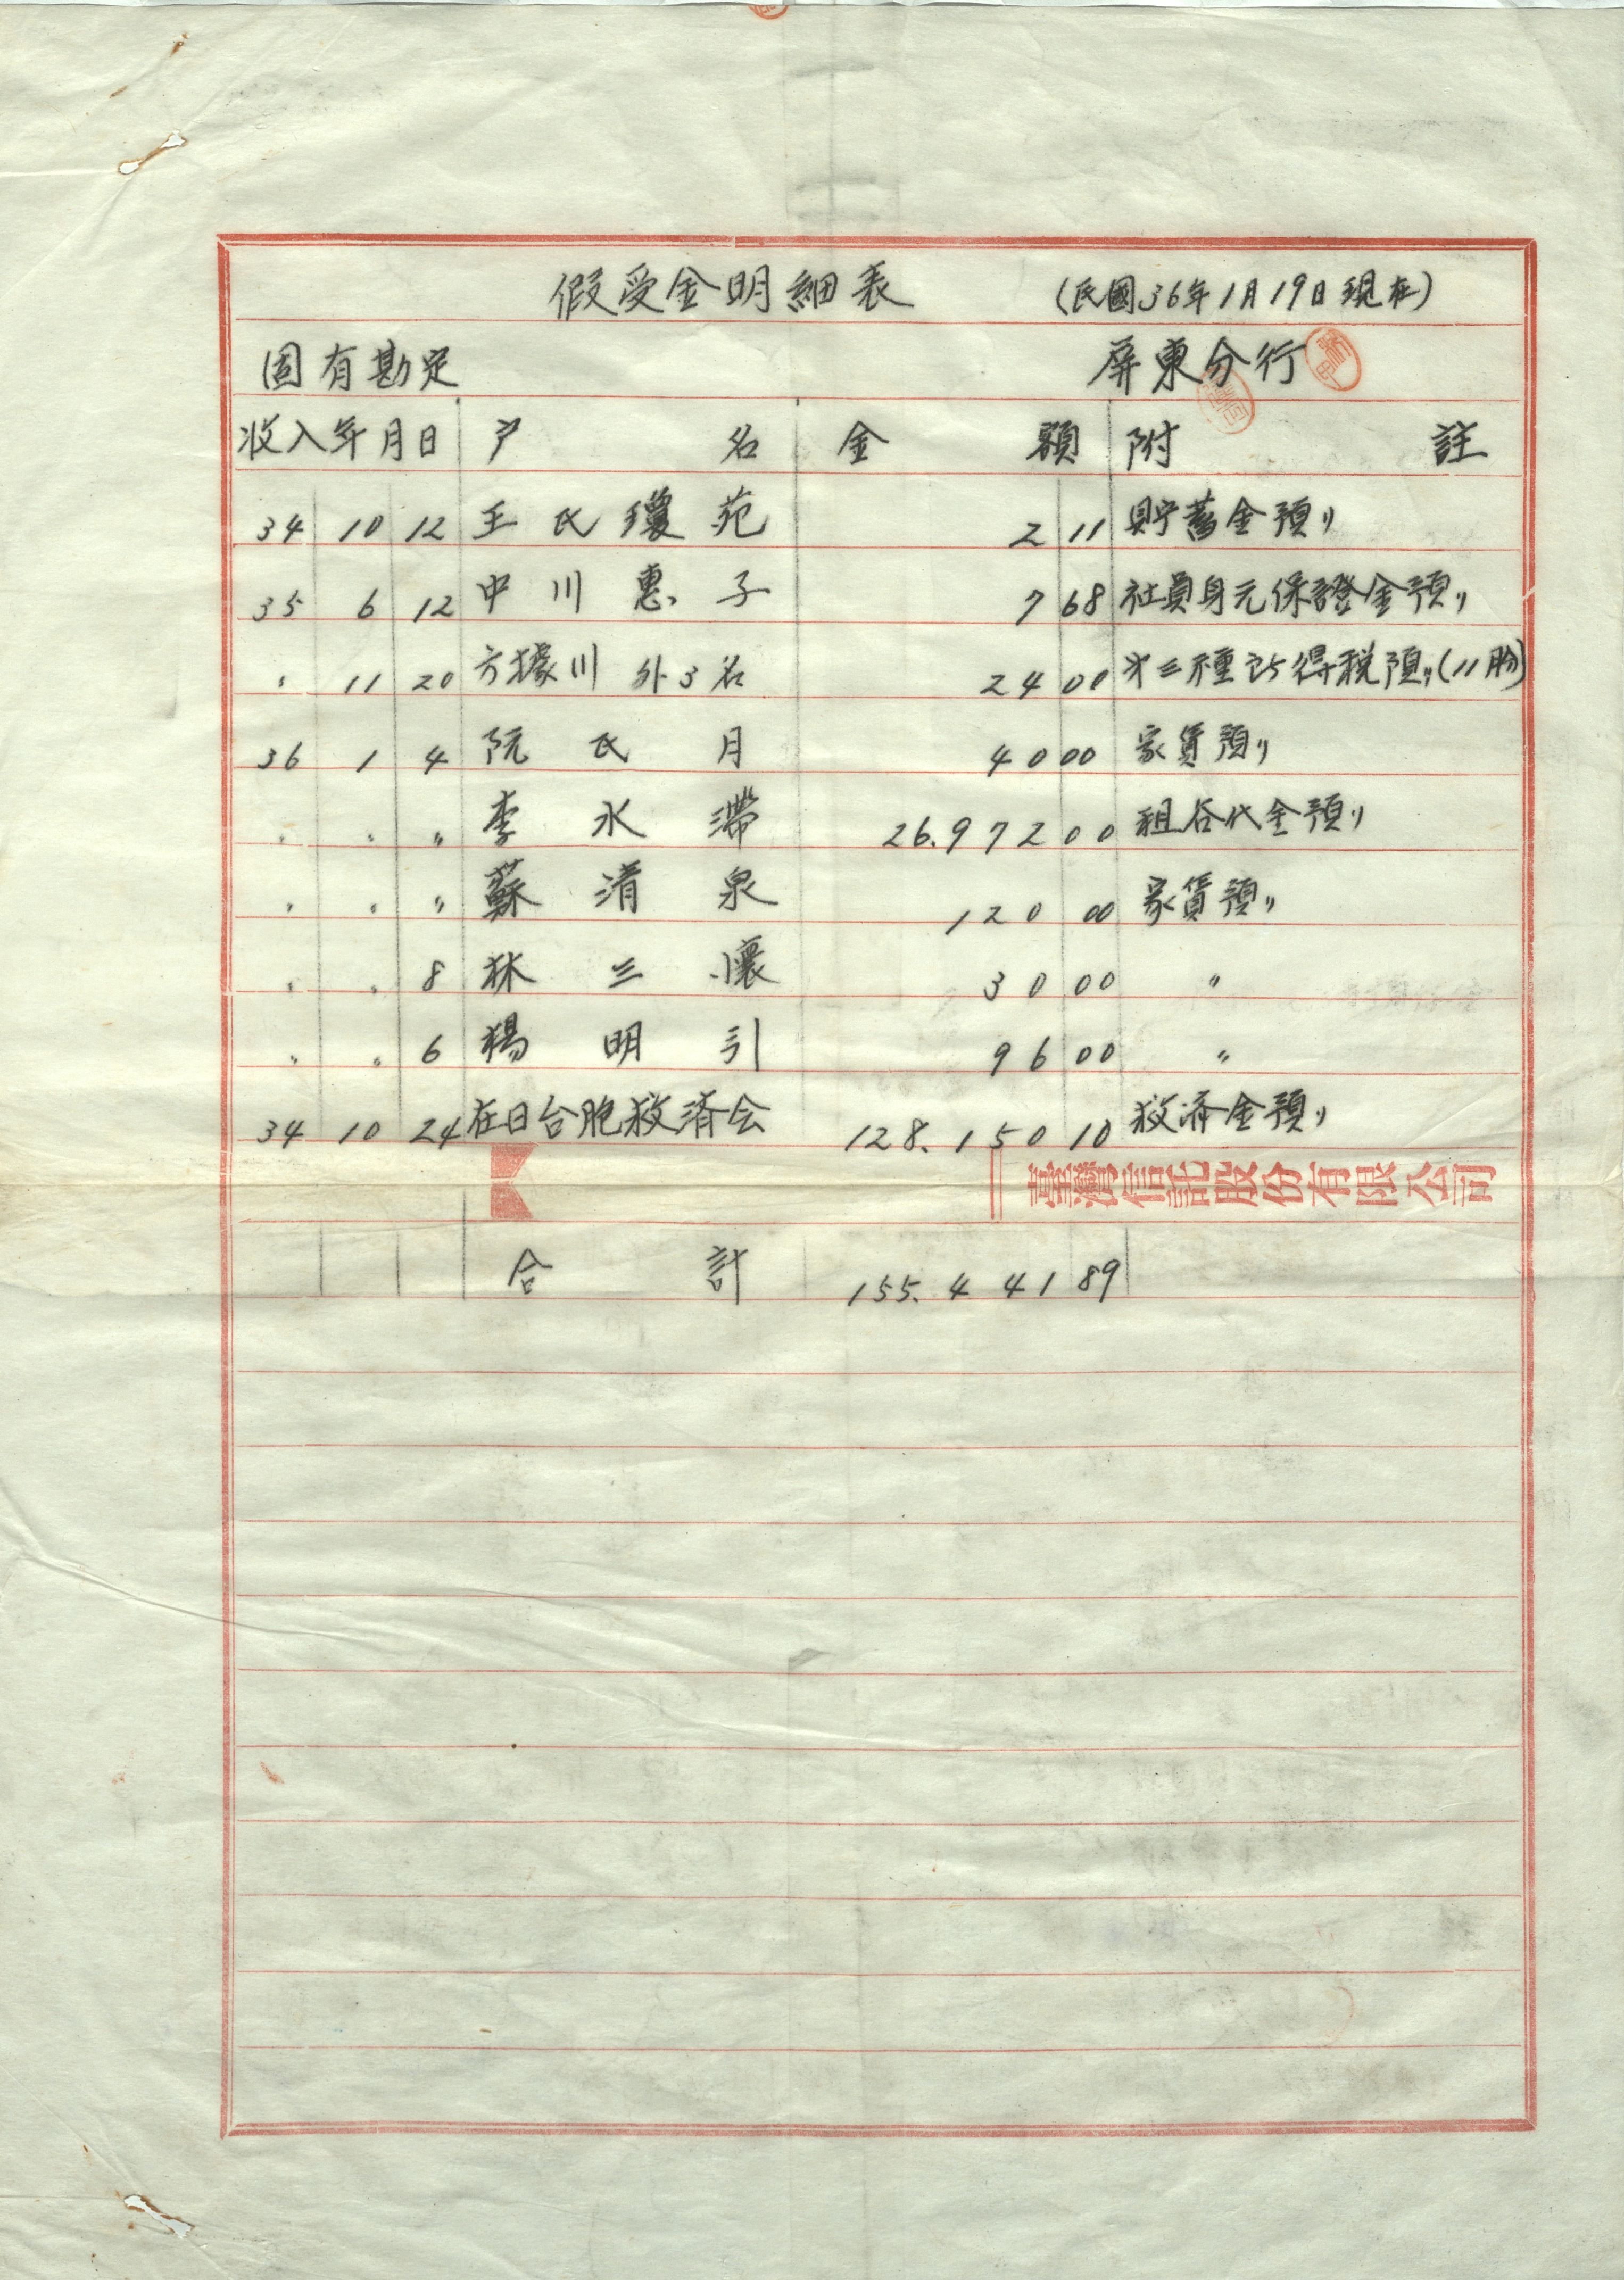 假受金明細表 (民國36年1月19日現在)
固有勘定 屏東分行
收入年月日 戶名 金額 附註
34 10 12 王氏瓊苑 2 11 貯蓄金預〃
35 6 12 中川惠子 7 68 社員身元保證金預〃
〃 11 20 方據川 外3名 24 00 才三種所得税預〃(11月份)
36 1 4 阮氏月 40 00 家賃預〃
〃 〃 〃 李水滯 26.972 00 租谷代金預〃
〃 〃 〃 蘇清泉 120 00 家賃預〃
〃 〃 8 林三懷 30 00 〃
〃 〃 6 楊明引 96 00 〃
34 10 24 在日台胞救済会 128.150 10 救济金預〃
臺灣信託股份有限公司
合計 155.441 89